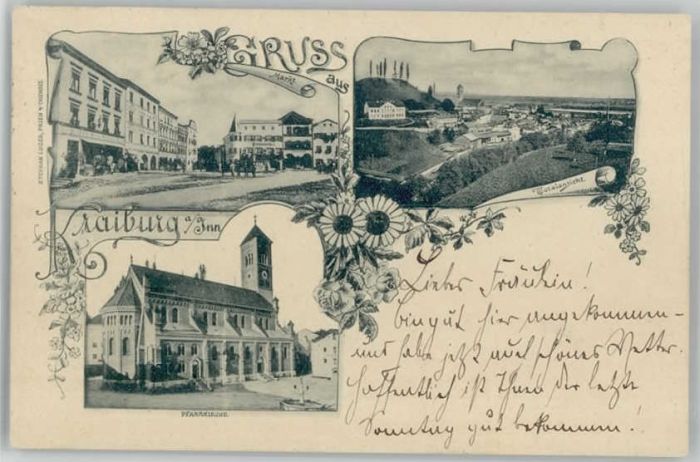 GRUSS
aus
Markt.
Kraiburg a/Inn
Totalansicht.
PFARRKIRCHE.
Liebes Fräulein!
bin gut hier angekommen
und habe jetzt auch schönes Wetter.
Hoffentlich ist Ihnen der letzte
Sonntag gut bekommen!